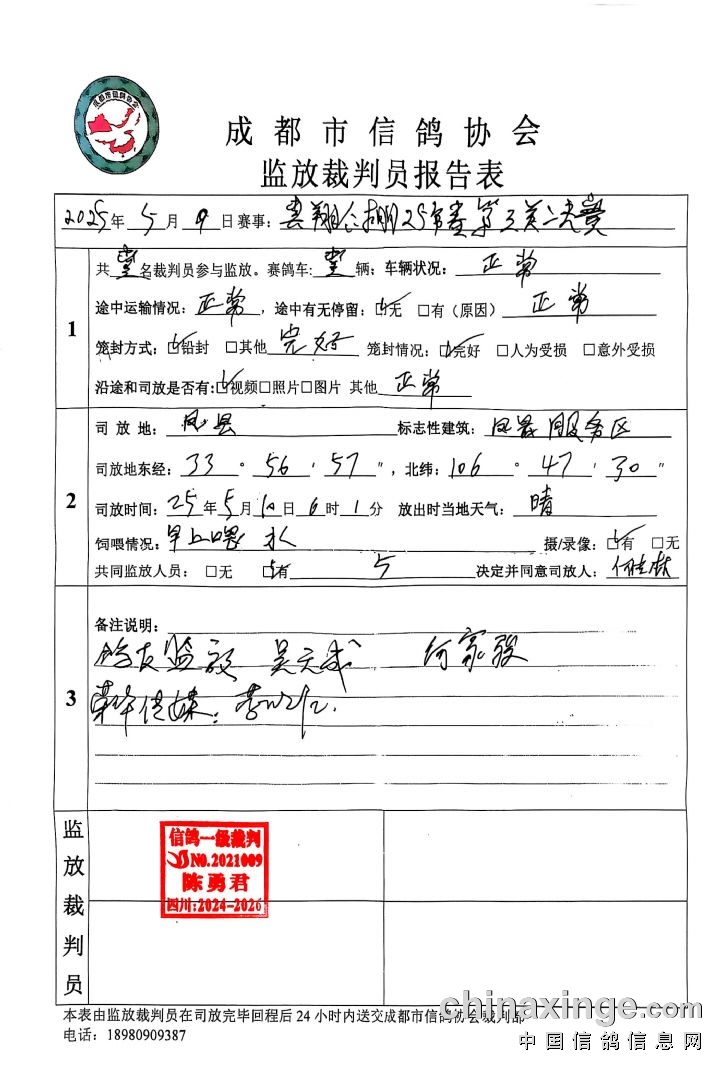 成都市信鸽协会
成都市信鸽协会
监放裁判员报告表
2025年 5月 9日赛事: 翔公棚25年春赛第三关决赛
1
共 壹 名裁判员参与监放。赛鸽车: 壹 辆; 车辆状况: 正常
途中运输情况: 正常 ,途中有无停留: ☑无 □有(原因) 正常
笼封方式: ☑铅封 □其他 完好 笼封情况: ☑完好 □人为受损 □意外受损
沿途和司放是否有:☑视频□照片□图片 其他 正常
2
司 放 地: 凤县 标志性建筑: 凤县服务区
司放地东经: 33 ° 56 ′ 57 ″,北纬: 106 ° 47 ′ 30 ″
司放时间: 25 年 5 月 10 日 6 时 1 分 放出时当地天气: 晴
饲喂情况: 早上喂水 摄/录像: ☑有 □无
共同监放人员: □无 ☑有 5 决定并同意司放人:
3
备注说明:
鸽友监放 吴天成 何家骏
荣华传媒:
监放裁判员
信鸽一级裁判
NO.2021009
陈勇君
四川:2024-2026
本表由监放裁判员在司放完毕回程后 24 小时内送交成都市信鸽协会裁判部
电话: 18980909387
chinaxinge.com
中国信鸽信息网